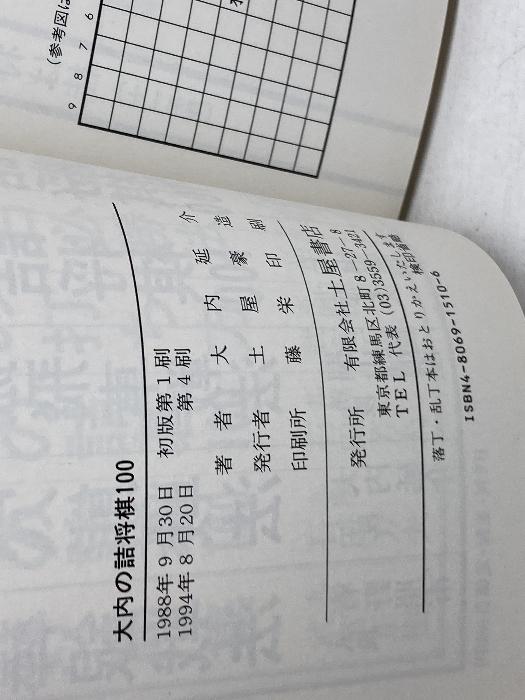 (参考図は
9 8 7 6
大内の詰将棋100
1988年 9月30日 初版第1刷
1994年 8月20日 第4刷
著者 大内延介
発行者 土屋豪造
印刷所 藤栄印刷
発行所 有限会社土屋書店
東京都練馬区北町8-27-8
TEL 代表 (03)3559-3421
検印省略
落丁・乱丁本はおとりかえいたします
ISBN4-8069-1510-6